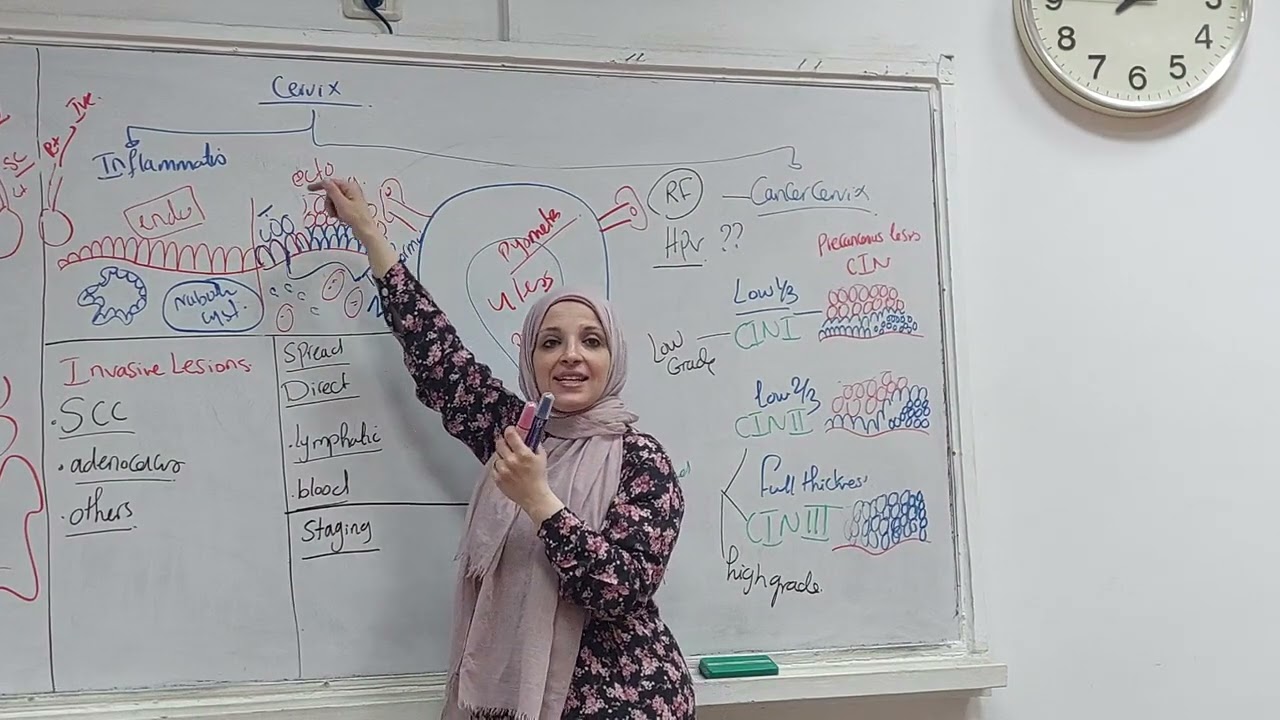 Cervix
Inflammatio
ecto
endo
Naboth
cyst.
Pyometra
4 less
RF
Cancer Cervix
HPV ??
Precancerous lesions
CIN
Low 1/3
CIN I
Low
Grade
low 2/3
CIN II
full thickness
CIN III
high grade
Invasive Lesions
. SCC
. adenocarcis
. others
Spread
Direct
. lymphatic
. blood
Staging
9
8
7
6
5
4
3